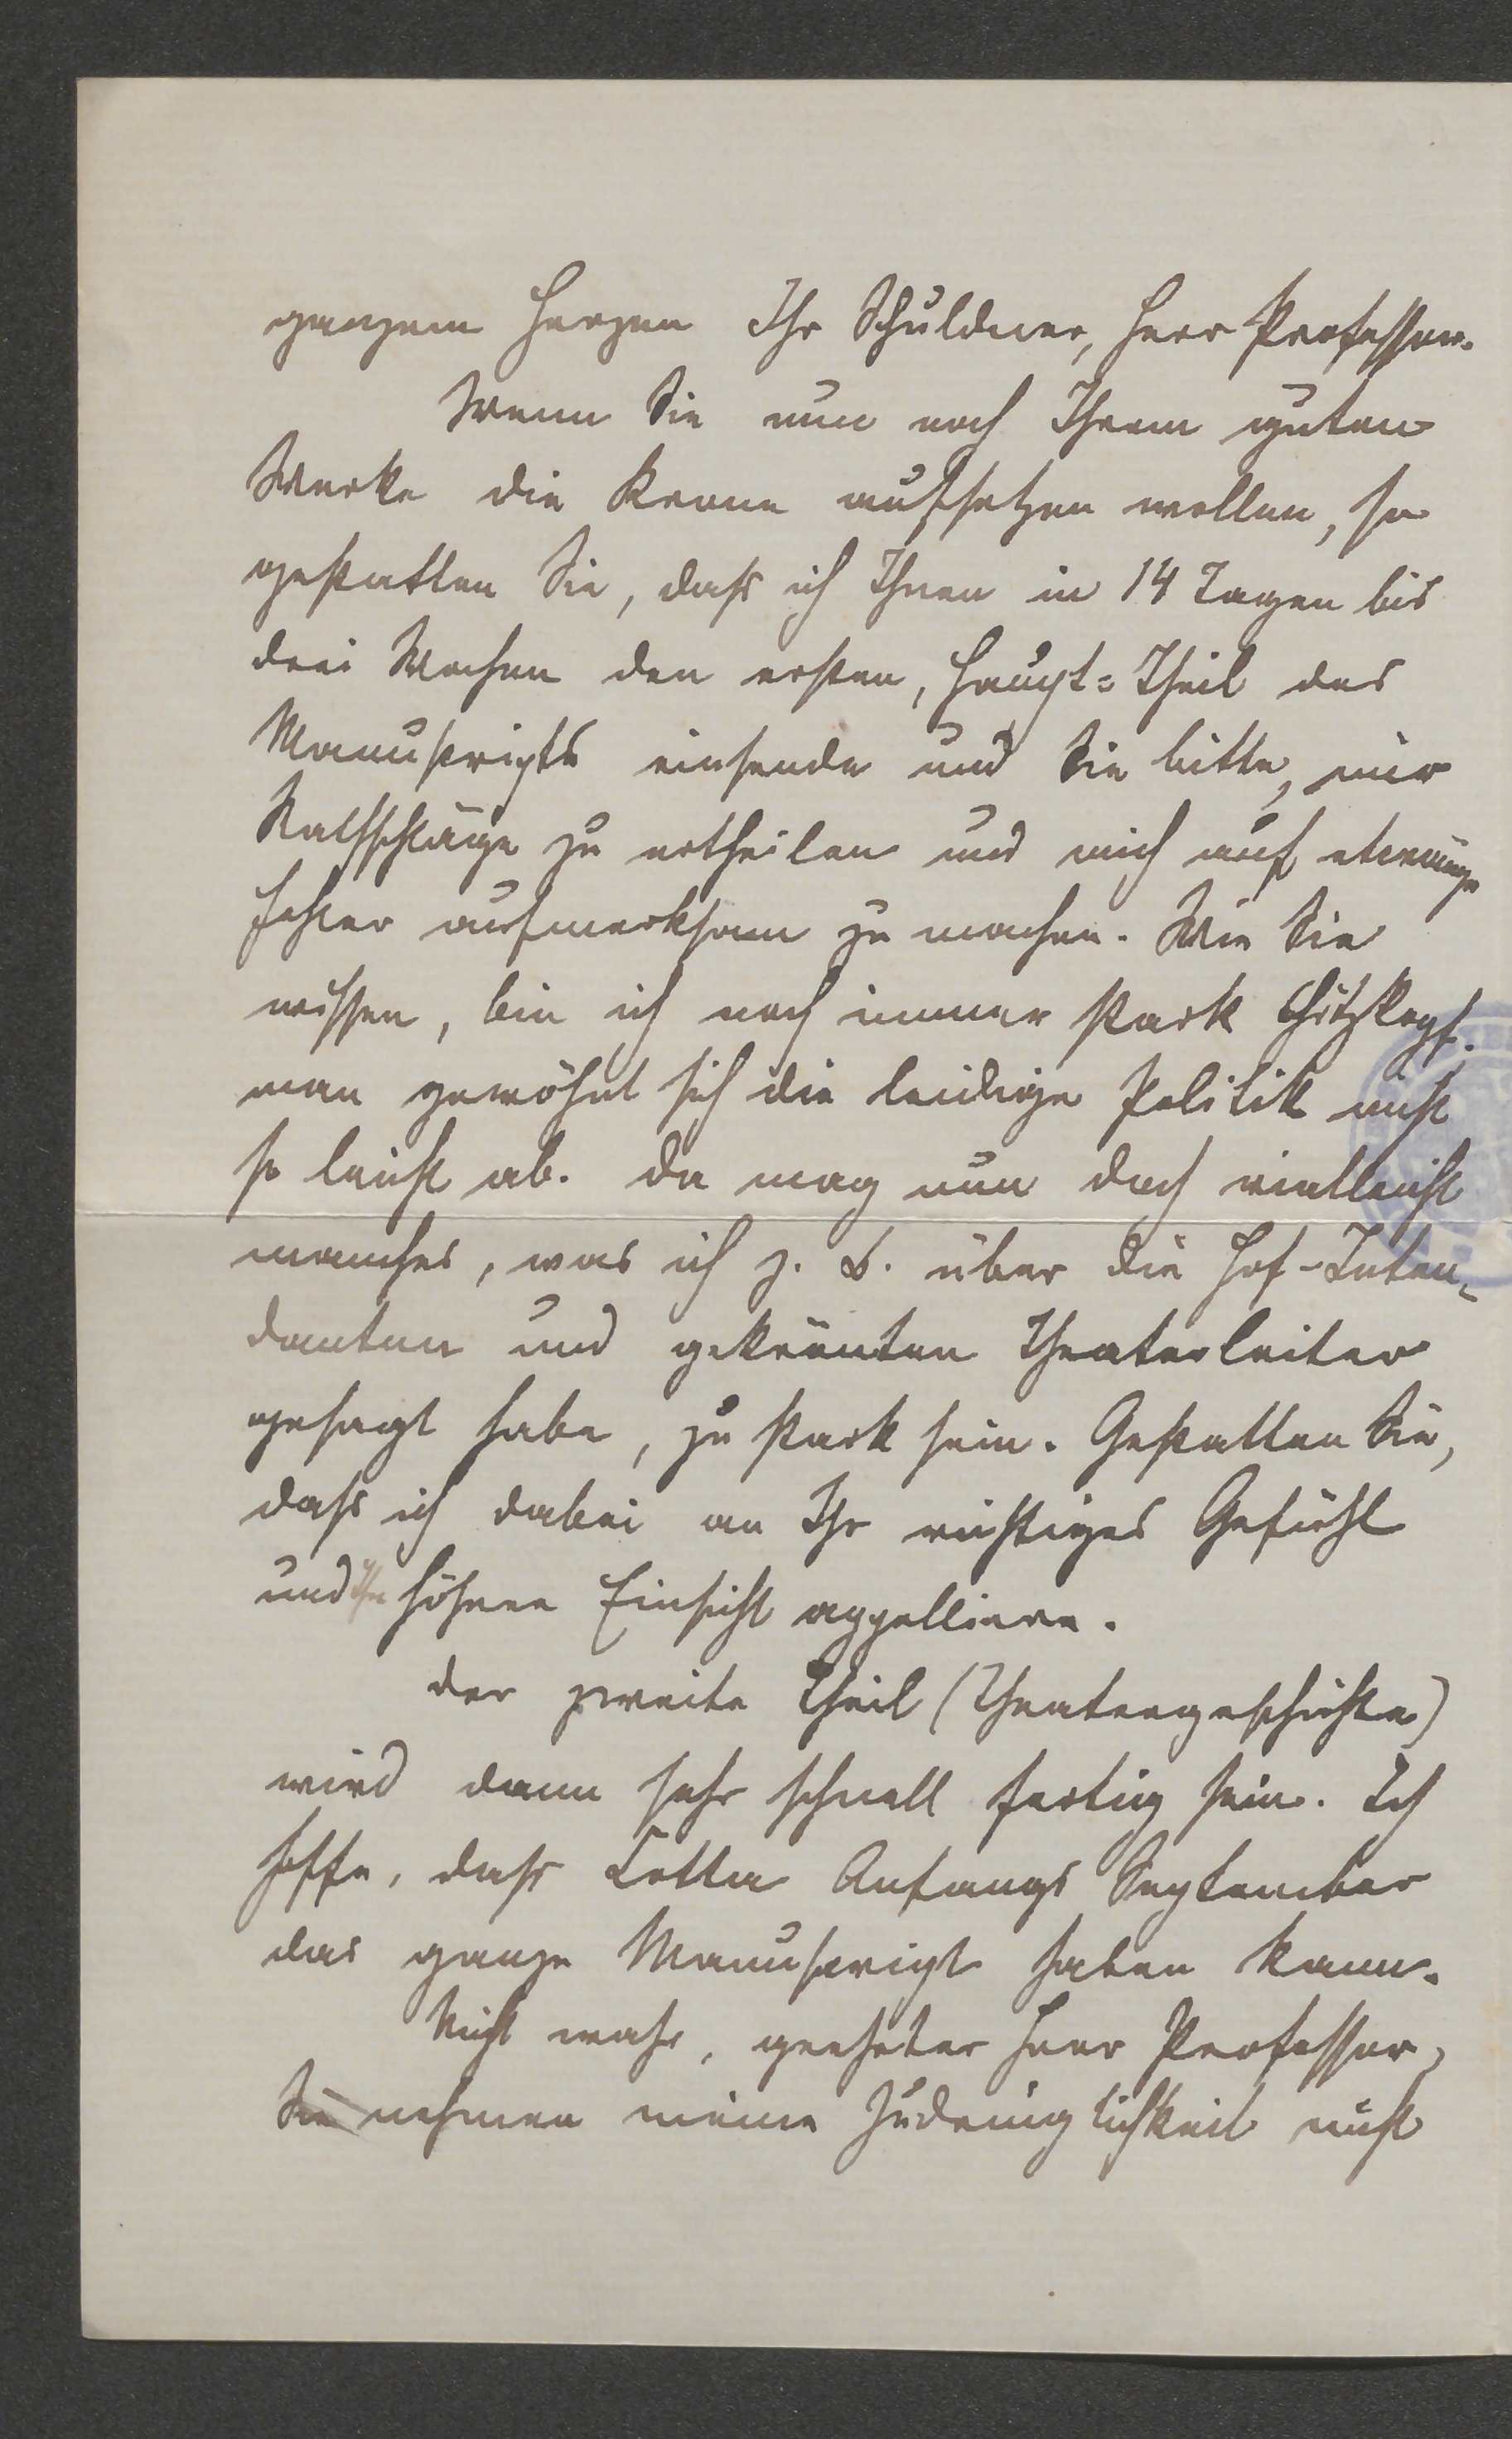 ganzem Herzen Ihr Schuldner, Herr Professor.
Wenn Sie nun noch Ihrem guten
Werke die Krone aufsetzen wollen, so
gestatten Sie, daß ich Ihnen in 14 Tagen bis
drei Wochen den ersten, Haupt=Theil des
Manuscripts einsende und Sie bitte, mir
Rathschläge zu ertheilen und mich auf etwaige
Fehler aufmerksam zu machen. Wie Sie
wissen, bin ich noch immer stark Hitzkopf.
man gewöhnt sich die leidige Politik nicht
so leicht ab. Da mag nun doch vielleicht
manches, was ich z. B. über die Hof-Inten-
danten und gekrönten Theaterleiter
gesagt habe, zu stark sein. Gestatten Sie,
daß ich dabei an Ihr richtiges Gefühl
und Ihre höhere Einsicht appelliere.
Der zweite Theil (Theatergeschichte)
wird dann sehr schnell fertig sein. Ich
hoffe, daß Cotta Anfangs September
das ganze Manuscript haben kann.
Nicht wahr, geehrter Herr Professor,
Sie nehmen meine Zudringlichkeit nicht